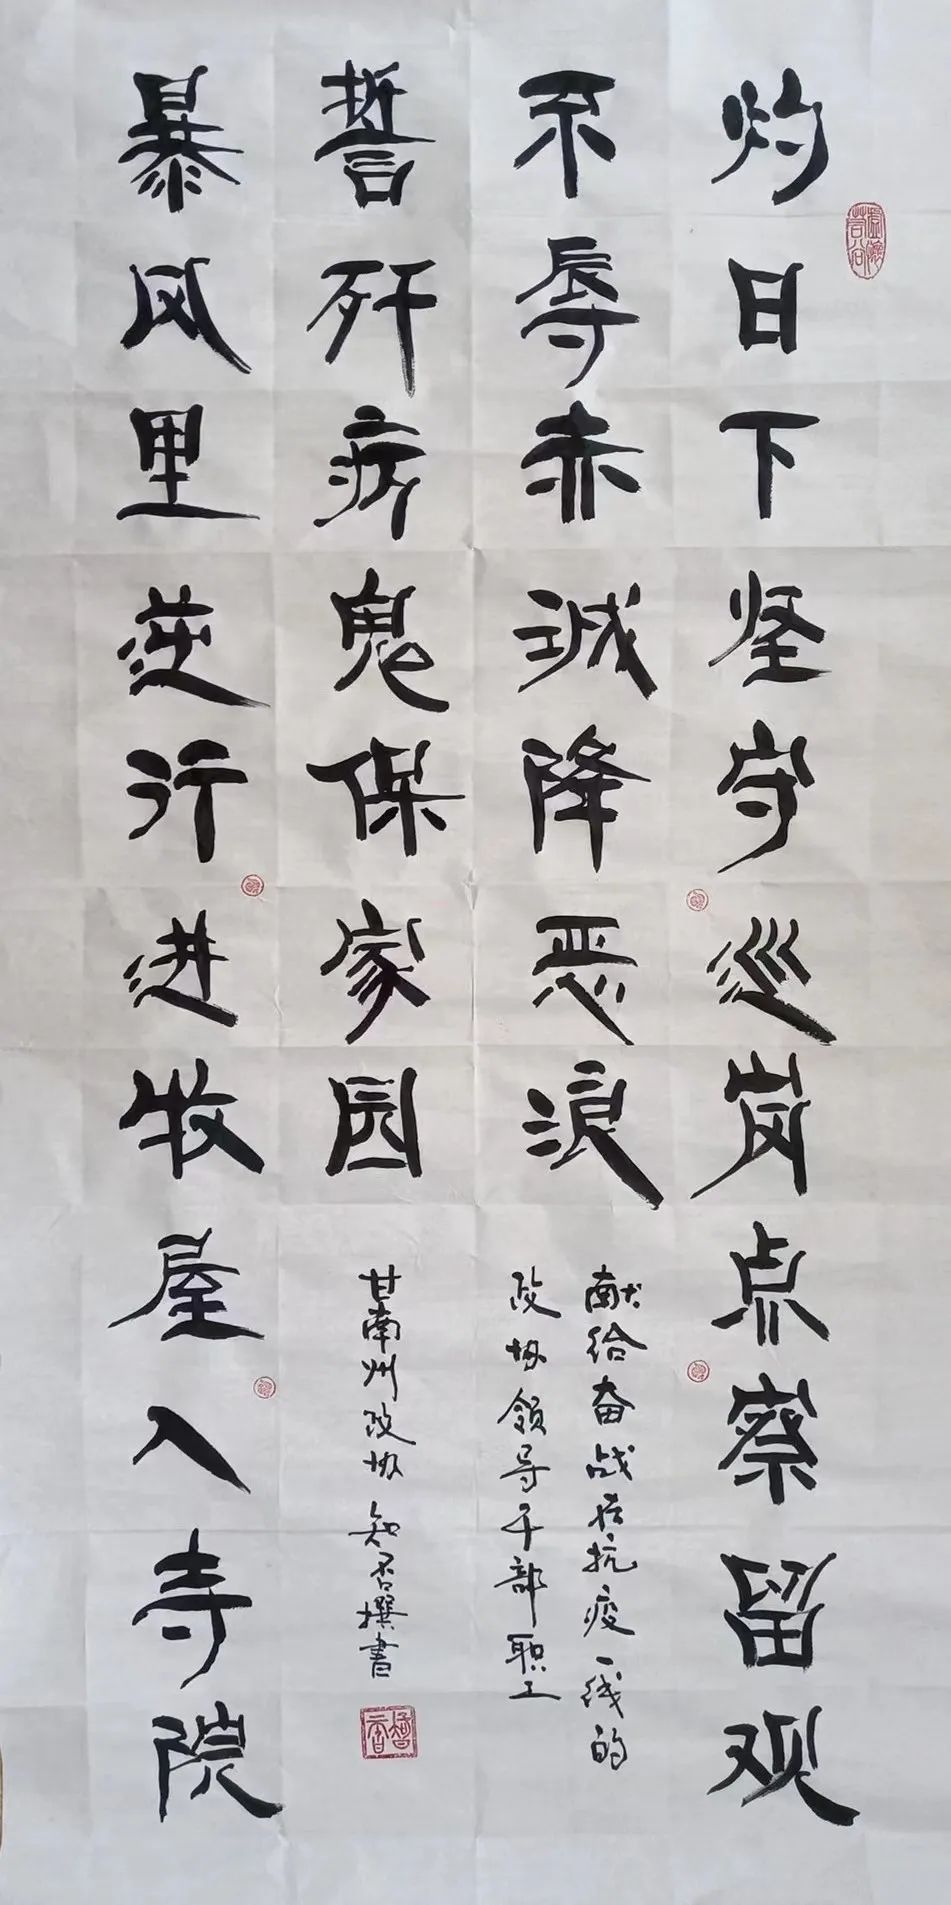 灼日下坚守巡岗点察留观
不辱赤诚降恶浪
献给奋战在抗疫一线的
政协领导干部职工
暴风里逆行进牧屋入寺院
誓歼病鬼保家园
甘南州政协 知否撰書
虚懷若谷